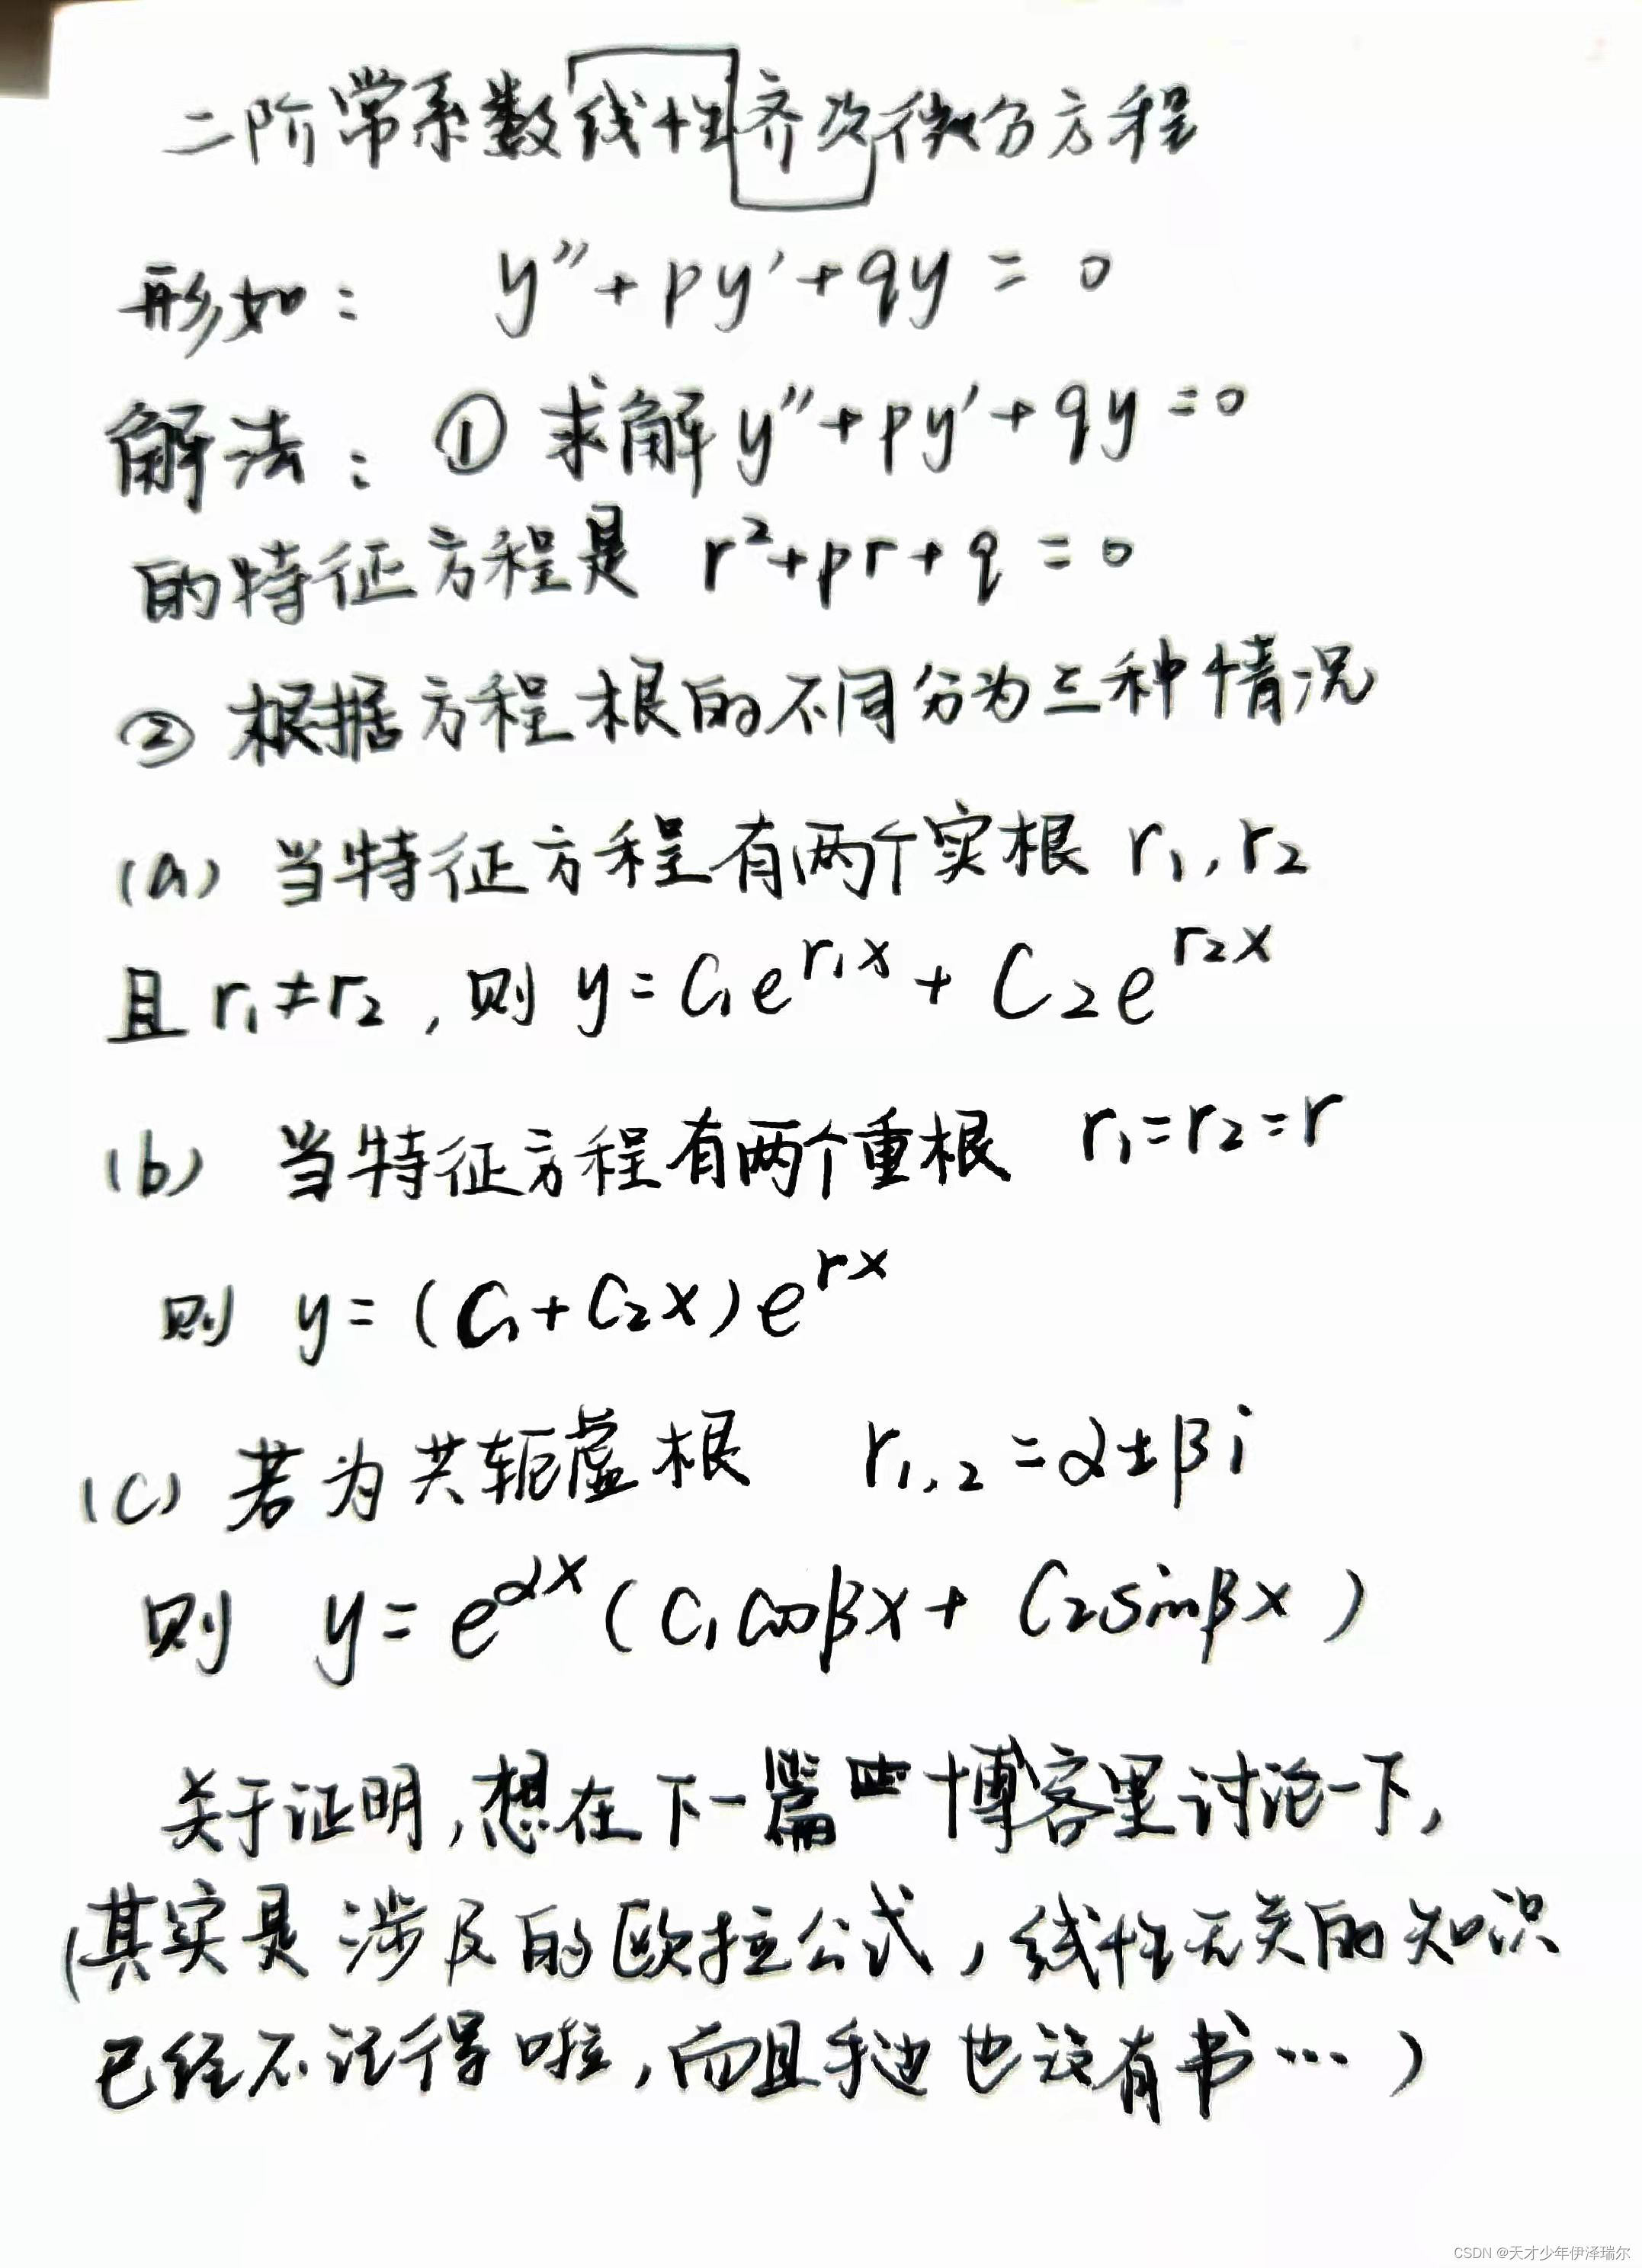 二阶常系数线性齐次微分方程
形如： y''+py'+qy=0
解法：① 求解y''+py'+qy=0
的特征方程是 r²+pr+q=0
② 根据方程根的不同分为三种情况
(a) 当特征方程有两个实根 r₁,r₂
且 r₁≠r₂，则 y=C₁e^{r₁x}+C₂e^{r₂x}
(b) 当特征方程有两个重根 r₁=r₂=r
则 y=(C₁+C₂x)e^{rx}
(c) 若为共轭虚根 r₁,₂=α±βi
则 y=e^{αx}(C₁cosβx+C₂sinβx)
关于证明,想在下一篇博客里讨论一下,
(其实是涉及的欧拉公式,线性无关的知识
已经不记得啦,而且手边也没有书…)
CSDN @天才少年伊泽瑞尔